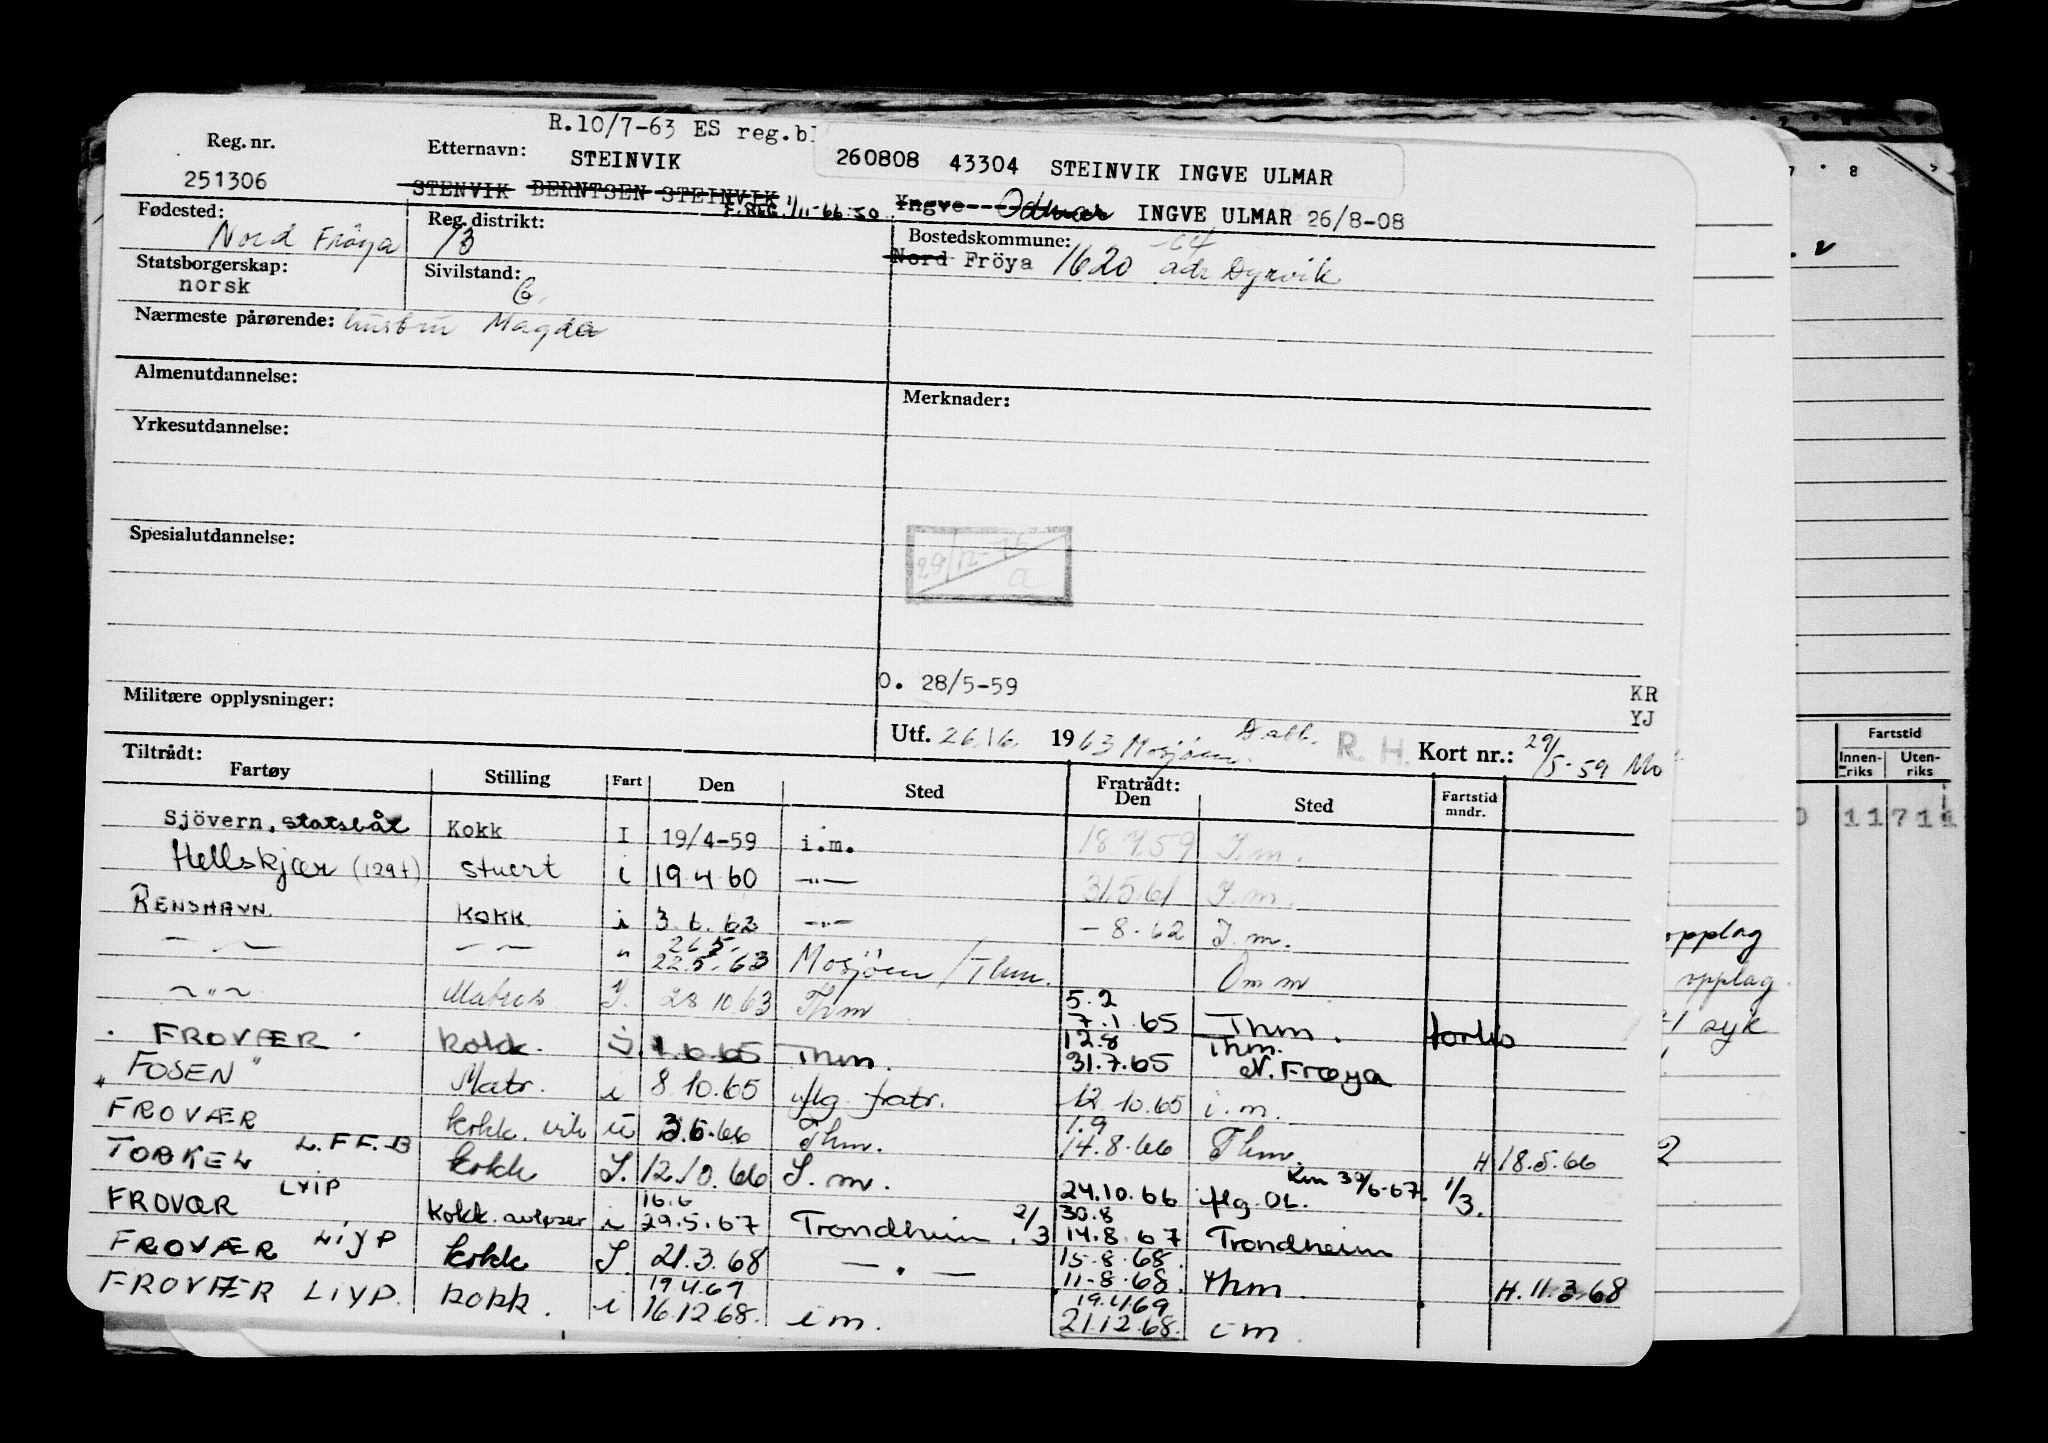 R.10/7-63 ES reg.bl
Reg. nr. Etternavn: 260808 43304 STEINVIK INGVE ULMAR
STEINVIK
251306 STENVIK BERNTSEN STEINVIK Yngve Odmar INGVE ULMAR 26/8-08
F. REG. 1/11-66 SO
Fødested: Reg. distrikt: Bostedskommune: -64
Nord Fröya 13 Nord Fröya 1620 adr Dyrvik
Statsborgerskap: Sivilstand:
norsk G.
Nærmeste pårørende: hustru Magda
Almenutdannelse:
Merknader:
Yrkesutdannelse:
Spesialutdannelse:
29/12-76
a
O. 28/5-59 KR
Militære opplysninger: YJ
Utf. 26/6 1963 Mosjöen Dall. R. H. Kort nr.: 29/5-59 Mo
Tiltrådt: Fratrådt:
Fartøy Stilling Fart Den Sted Den Sted Fartstid mndr.
Sjövern, statsbåt Kokk I 19/4-59 i.m. 18 7 59 I.m.
Hellskjær (129t) Stuert i 19 4 60 —"— 31.5.61 I.m.
RENSHAVN KOKK i 3.6.62 —"— – 8.62 I.m.
—"— —"— " 26 5. 22.5.63 Mosjöen / Thm. Om m
—"— Matros I. 28 10 63 Thm 5.2 7.1.65 Thm.
FROVÆR kokk. i 1.6.65 Thm. 12.8 31.7.65 Thm. N. Frøya
"FOSEN" Matr. i 8.10.65 iflg. fratr. 12 10.65 i.m.
FROVÆR kokk. vik i 3.5.66 Thm. 1.9 14.8.66 Thm. H 18.5.66
L.FF.B kokk I. 12.10.66 I. m. 24.10.66 iflg. OL. 1/3.
FROVÆR LYIP Kokk. avløser i 16.6 29.5.67 Trondheim 2/3 30.8 14.8.67 Trondheim
FROVÆR LIYP kokk I. 21.3.68 — " — 15-8-68. 11-8-68. Thm. H. 11.3.68
FROVÆR LIYP. kokk. i 19.4.69 16.12 68. i m. 19.4.69 21.12.68. i m.
Fartstid
Innen-riks Uten-riks
0 11 7 1 1
opplag
opplag
21 syk
2